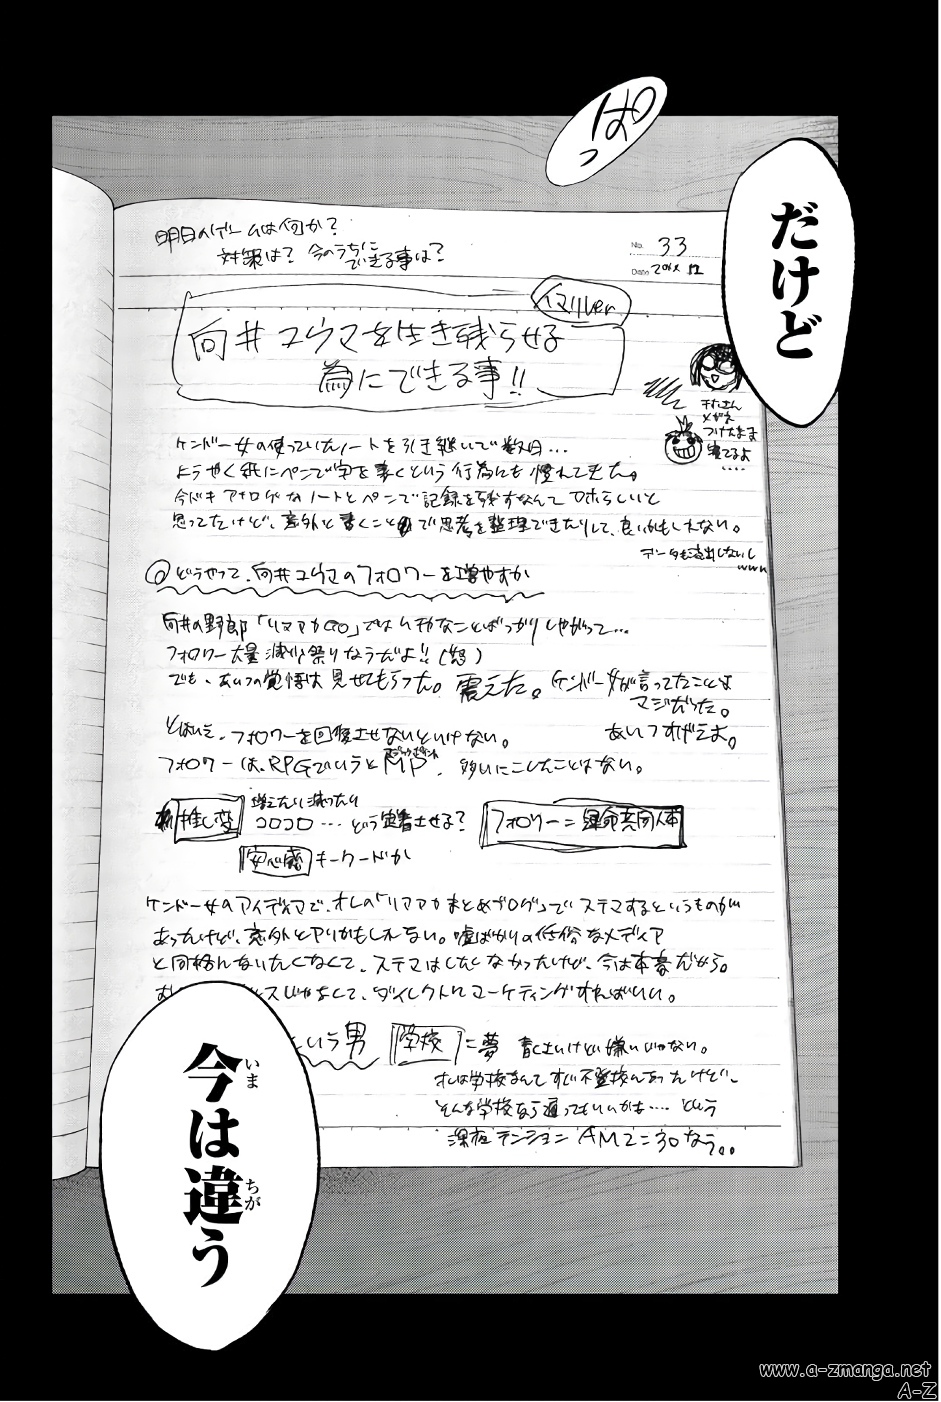 ぱっ
だけど
明日のゲームは何か?
対策は? 今のうちに
できる事は?
No. 33
Date
イマリver
向井ユウマを生き残らせる
為にできる事!!
メガネ
つけたまま
寝てるよ
....
ケンドー女の使っていたノートを引き継いで数日…
ようやく紙にペンで字を書くという行為にも慣れてきた。
今ドキアナログなノートとペンで記録を残すなんてアホらしいと
思ってたけど、意外と書くことで思考を整理できたりして、良いかもしれない。
データも流出しないし
www
◎どうやって、向井ユウマのフォロワーを増やすか
向井の野郎「リマアカGO」ではムチャなことばっかりしやがって…
フォロワー大量減少祭りなうだよ!!(怒)
でも、あいつの覚悟は見せてもらった。震えた。ケンドー女が言ってたことは
マジだった。
あいつすげえよ。
とはいえ、フォロワーを回復させないといけない。
フォロワーは、RPGでいうとMP、多いにこしたことはない。
推し変 増えたり減ったり
コロコロ…どう定着させる? フォロワー=運命共同体
安心感 キーワードか
ケンドー女のアイディアで、オレの「リマアカまとめブログ」でステマするというものが
あったけど、意外とアリかもしれない。嘘ばかりの低俗なメディア
と同格になりたくなくて、ステマはしたくなかったけど、今は本音だから。
スじゃなくて、ダイレクトにマーケティングすればいい。
という男 学校に夢 青くさいけど嫌いじゃない。
オレは学校なんてすぐ不登校んなったけど、
そんな学校なら通ってもいいかも…という
深夜テンション AM2:30なう。。
今は違う
いま
ちが
www.a-zmanga.net
A-Z